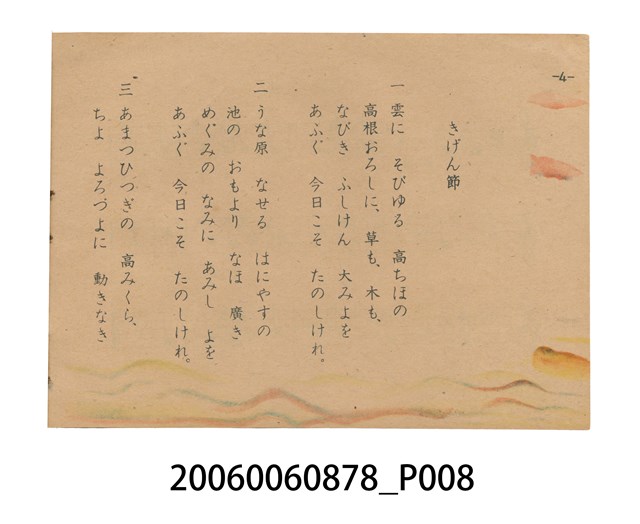 -4-
きげん節
一 雲に そびゆる 高ちほの
高根おろしに、草も、木も、
なびき ふしけん 大みよを
あふぐ 今日こそ たのしけれ。
二 うな原 なせる はにやすの
池の おもより なほ 廣き
めぐみの なみに あみし よを
あふぐ 今日こそ たのしけれ。
三 あまつひつぎの 高みくら、
ちよ よろづよに 動きなき
20060060878_P008